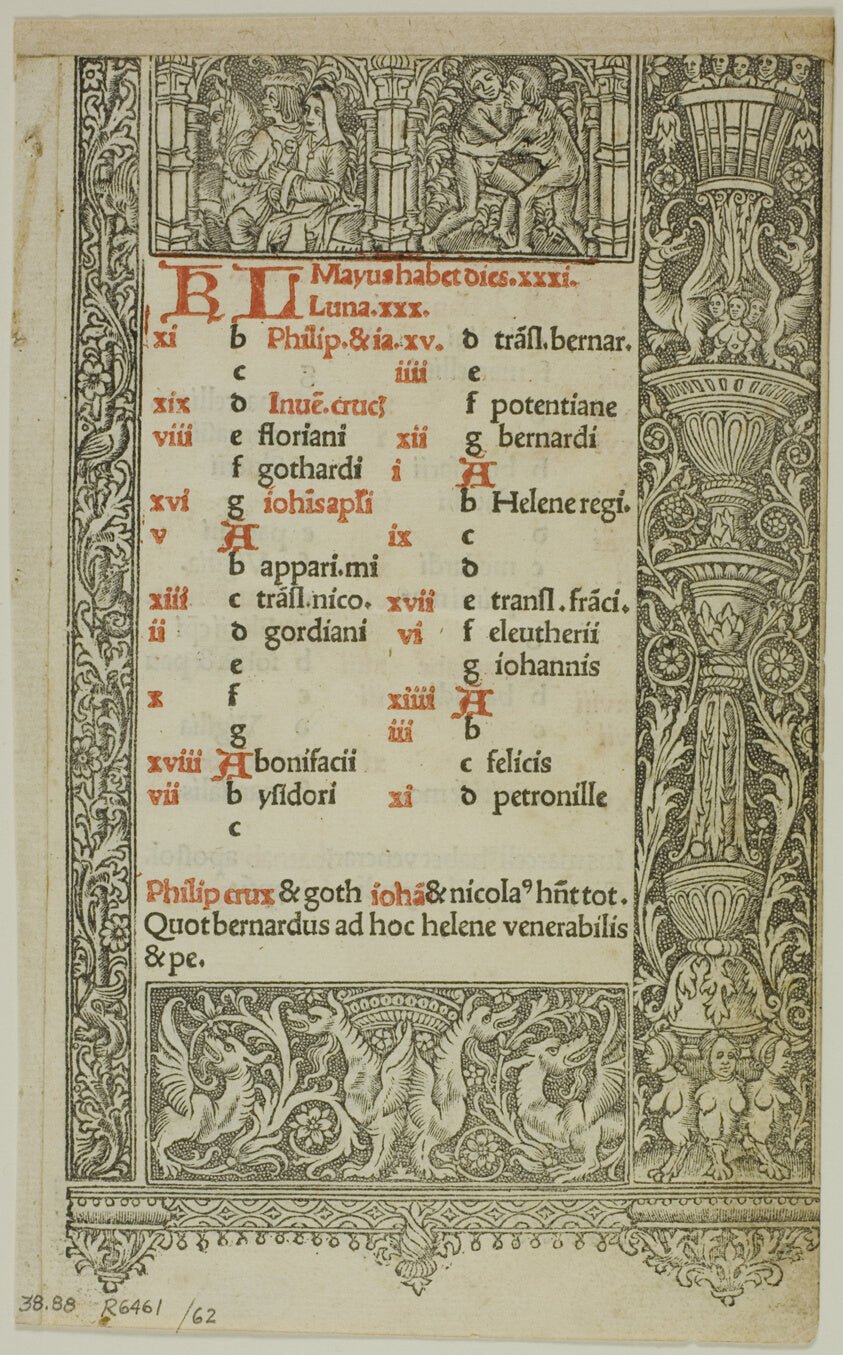 KL Mayus habet dies.xxxi.
Luna.xxx.
xi b Philip.&ia.xv. d trãsl.bernar.
c iiii e
xix d Inuẽ.cruc f potentiane
viii e floriani xii g bernardi
f gothardi i A
xvi g iohis apli b Helene regi.
v A ix c
b appari.mi d
xiii c trãsl.nico. xvii e transl.frãci.
ii d gordiani vi f eleutherii
e g iohannis
x f xiiii A
g iii b
xviii A bonifacii c felicis
vii b ysidori xi d petronille
c
Philip crux & goth iohã & nicolaꝰ hñt tot.
Quot bernardus ad hoc helene venerabilis
& pe.
38.88 R6461 /62